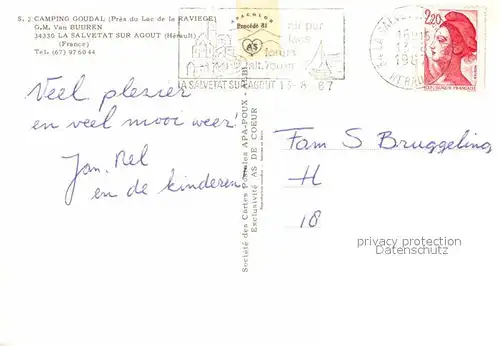 S. 2 CAMPING GOUDAL (Près du Lac de la RAVIEGE)
G.M. Van BUUREN
34330 LA SALVETAT SUR AGOUT (Hérault)
(France)
Tel. (67) 97 60 44
APACOLOR
Procédé 81
AS
air pur
lacs
forêts
LA SALVETAT SUR AGOUT 13-8 87
13-8
HERAULT
2,20
REPUBLIQUE FRANÇAISE
Veel plezier
en veel mooi weer!
Jan. Nel
en de kinderen
Société des Cartes Postales APA-POUX - ALBI
Exclusivité AS DE COEUR
Fam S Bruggeling
H
18
privacy protection
Datenschutz